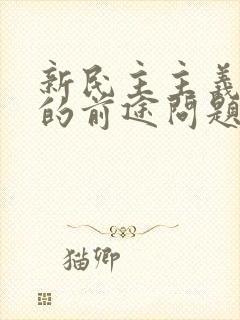 新民主主義
的前途問題
猫卿